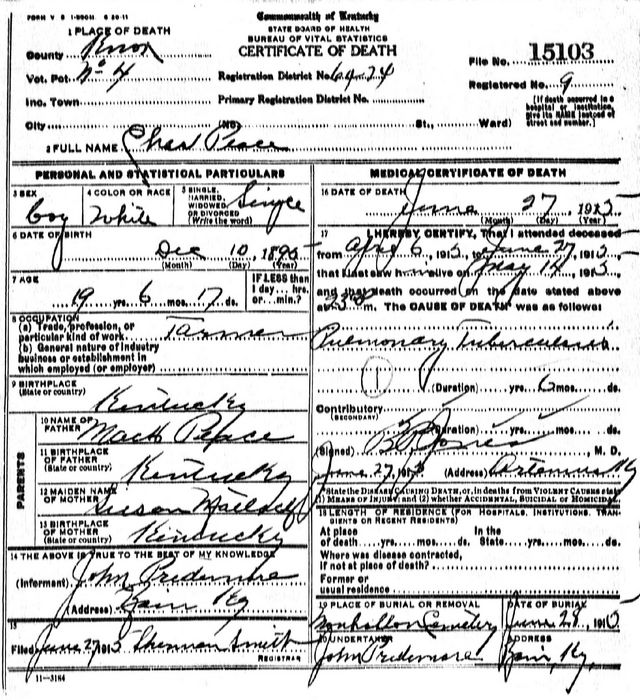 FORM V S 1-500M 6 20-11
Commonwealth of Kentucky
STATE BOARD OF HEALTH
BUREAU OF VITAL STATISTICS
CERTIFICATE OF DEATH
1 PLACE OF DEATH
County Knox
Vot. Pct. No 4
Inc. Town
City (No St., Ward)
Registration District No. 6424
Primary Registration District No.
File No. 15103
Registered No. 9
(If death occurred in a hospital or institution, give its NAME instead of street and number.)
2 FULL NAME Chas Peace
PERSONAL AND STATISTICAL PARTICULARS
3 SEX
boy
4 COLOR OR RACE
White
5 SINGLE, MARRIED, WIDOWED OR DIVORCED (Write the word)
Single
6 DATE OF BIRTH
Dec 10, 1895
(Month) (Day) (Year)
7 AGE
19 yrs. 6 mos. 17 ds.
IF LESS than 1 day... hrs. or... min.?
8 OCCUPATION
(a) Trade, profession, or particular kind of work Farmer
(b) General nature of industry business or establishment in which employed (or employer)
9 BIRTHPLACE
(State or country) Kentucky
PARENTS
10 NAME OF FATHER Mack Peace
11 BIRTHPLACE OF FATHER (State or country) Kentucky
12 MAIDEN NAME OF MOTHER Susan
13 BIRTHPLACE OF MOTHER (State or country) Kentucky
14 THE ABOVE IS TRUE TO THE BEST OF MY KNOWLEDGE
(Informant) John Predemore
(Address) Ky
15
Filed June 27 1915 Sherman Smith
REGISTRAR
11-3184
MEDICAL CERTIFICATE OF DEATH
16 DATE OF DEATH
June 27, 1915
(Month) (Day) (Year)
17 I HEREBY CERTIFY, That I attended deceased
from Apr 6, 1915, to June 27, 1915,
that I last saw h alive on May 14, 1915,
and that death occurred on the date stated above
at m. The CAUSE OF DEATH was as follows:
Pulmonary Tuberculosis
(Duration) yrs. 6 mos. ds.
Contributory
(SECONDARY)
(Duration) yrs. mos. ds.
(Signed) Jones, M. D.
June 27, 191 (Address) Artemus Ky
State the DISEASE CAUSING DEATH, or, in deaths from VIOLENT CAUSES state (1) MEANS OF INJURY; and (2) whether ACCIDENTAL, SUICIDAL or HOMICIDAL.
18 LENGTH OF RESIDENCE (FOR HOSPITALS, INSTITUTIONS, TRANSIENTS OR RECENT RESIDENTS)
At place of death yrs. mos. ds. In the State yrs. mos. ds.
Where was disease contracted, if not at place of death?
Former or usual residence
19 PLACE OF BURIAL OR REMOVAL
Cemetery
DATE OF BURIAL
June 28, 1915
20 UNDERTAKER
John Predemore
ADDRESS
Ky,